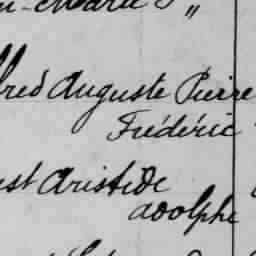 n-Marie S "
fred Auguste Pierre
Frédéric
est Aristide
adolphe